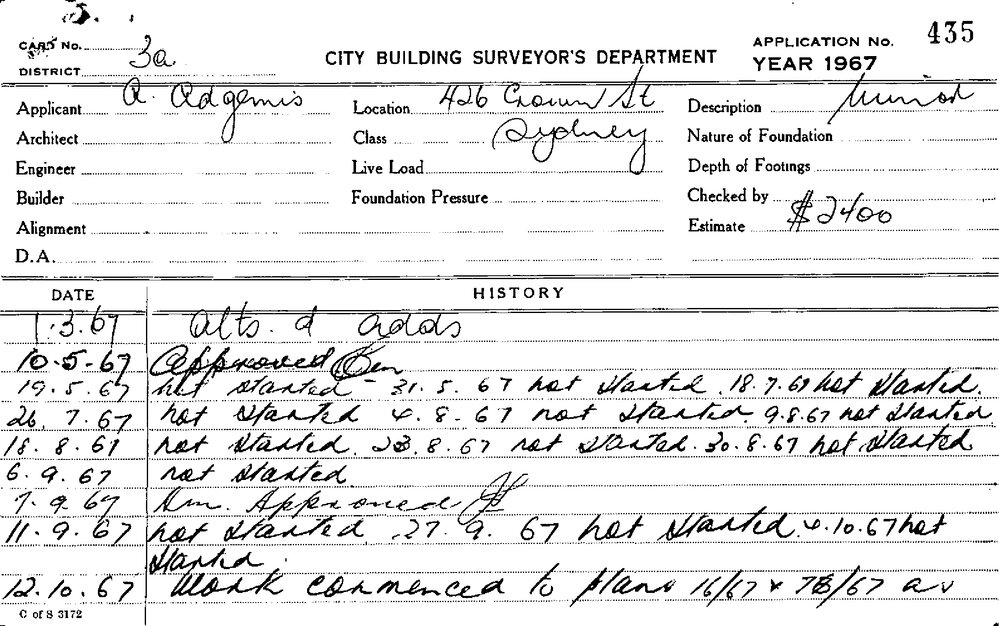 CARD No.
DISTRICT 3a
CITY BUILDING SURVEYOR'S DEPARTMENT
APPLICATION No. 435
YEAR 1967
Applicant A. Adgemis
Location 426 Crown St
Description Minor
Architect
Class Sydney
Nature of Foundation
Engineer
Live Load
Depth of Footings
Builder
Foundation Pressure
Checked by
Alignment
Estimate $2400
D.A.
DATE HISTORY
1.3.67 Alts. & Adds
10.5.67 Approved
19.5.67 not started - 31.5.67 not started. 18.7.67 not started.
26.7.67 not started 4.8.67 not started 9.8.67 not started
18.8.67 not started. 23.8.67 not started. 30.8.67 not started
6.9.67 not started.
7.9.67 Am. Approved
11.9.67 not started. 27.9.67 not started. 4.10.67 not
started.
12.10.67 Work commenced to plans 16/67 & 7B/67 as
C of S 3172